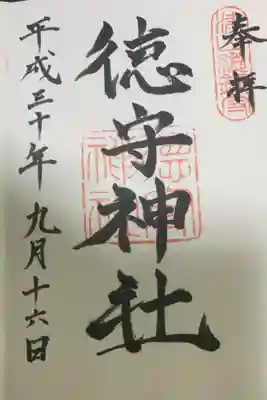 奉拝
徳守神社
平成三十年九月十六日